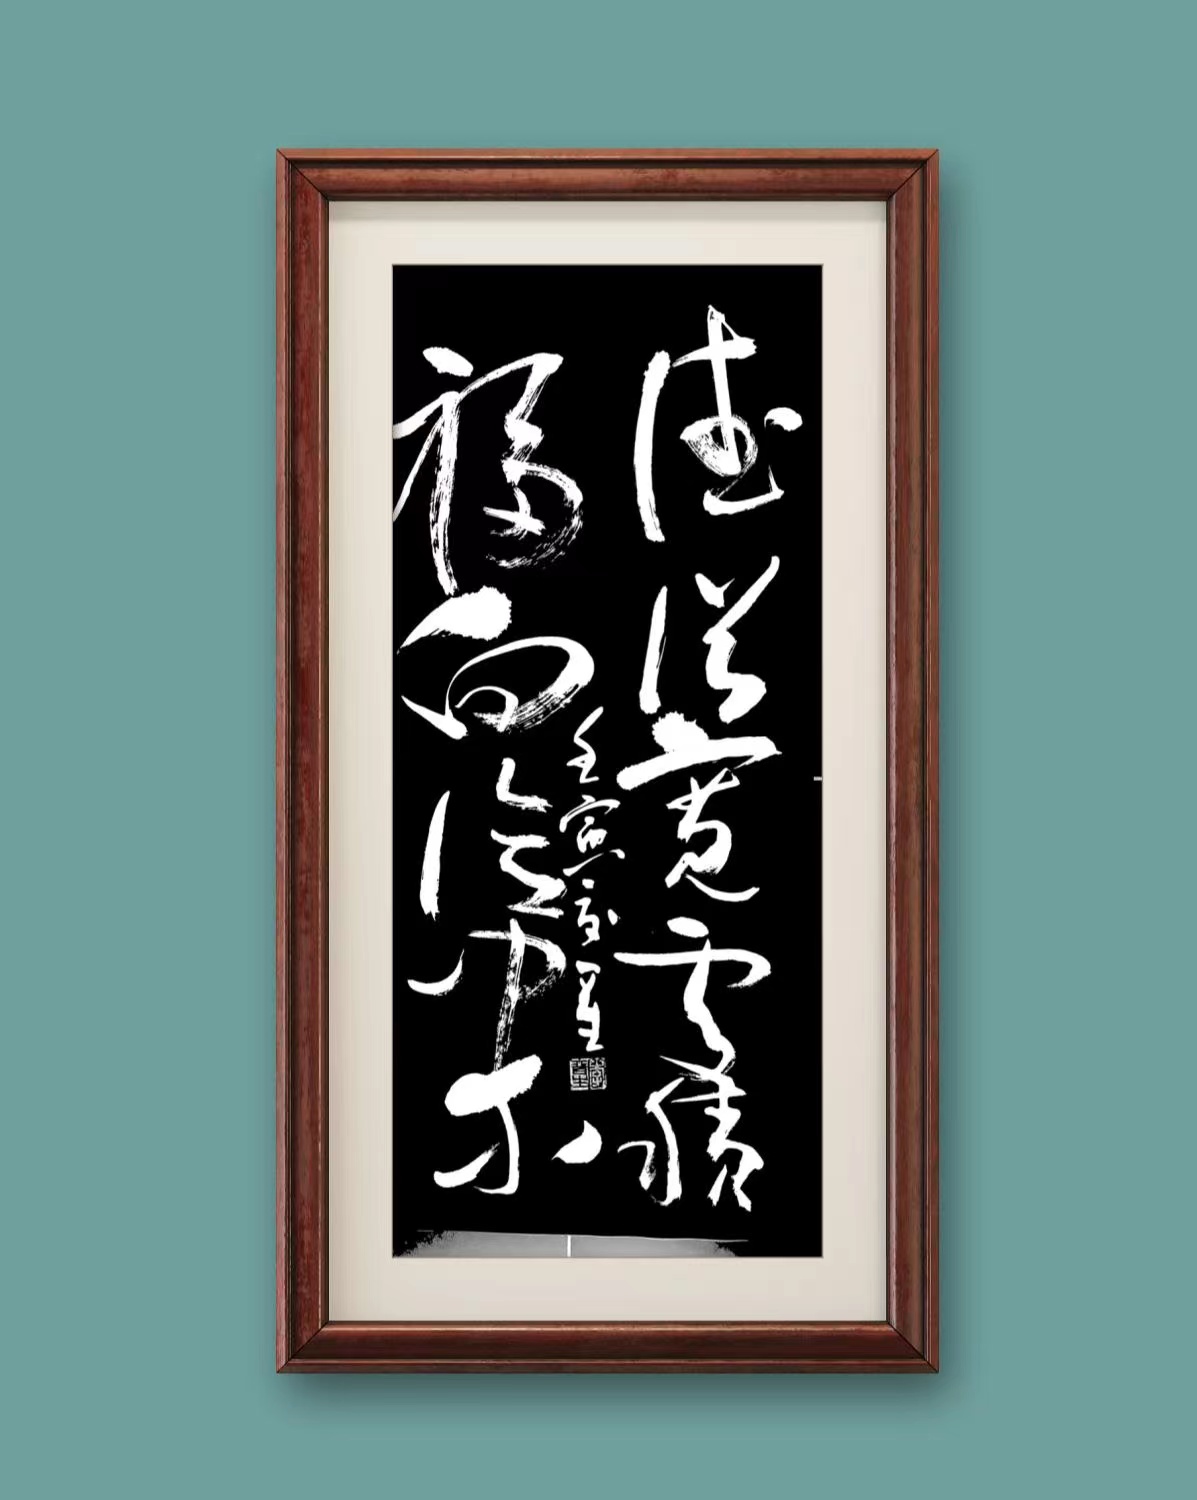 德從寬處積
福向儉中求
壬寅